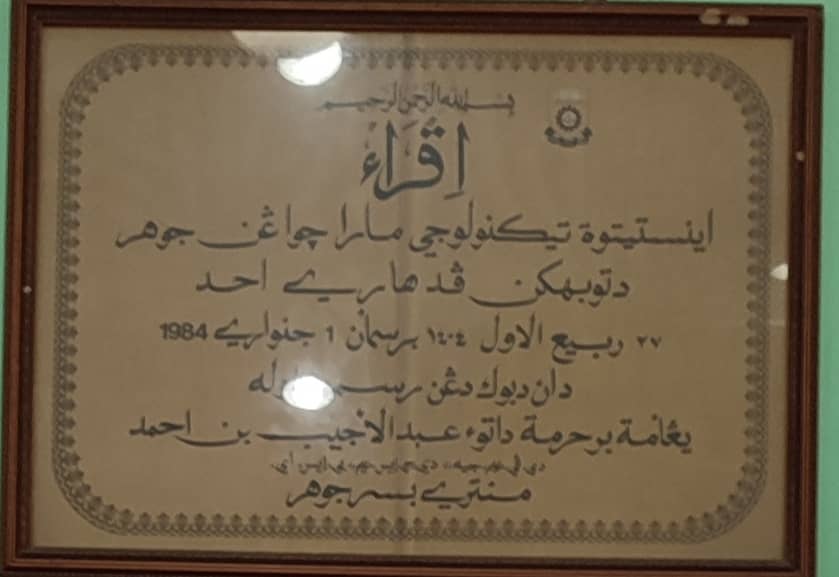 بسم الله الرحمن الرحيم
اِقْرَاء
اينستيتوة تيكنولوجي مارا چواڠن جوهر
دتوبهكن ڤد هاري احد
٢٧ ربيع الاول ١٤٠٤ برسمان 1 جنواري 1984
دان دبوك دڠن رسمي اوله
يڠامة برحرمة داتوء عبدالاجيب بن احمد
منتري بسر جوهر